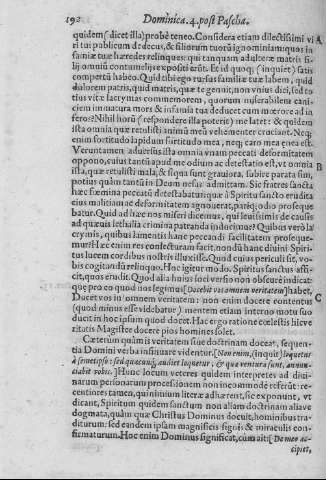 192 Dominica. 4. post Pascha.
quidem (dicet illa) probè teneo. Considera etiam dilectissimi vi A
ri tui publicum dedecus, & filiorum tuorũ ignominiam: quos in
famiæ tuæ hæredes relinques: qui tanquam adulteræ matris fi-
lij omniũ contumelijs expositi erũt. Et id quoq; (inquiet) satis
compertũ habeo. Quid tibi ego rursus familiæ tuæ labem, quid
dolorem patris, quid matris, quæ te genuit, non vnius diei, sed to
tius vitæ lacrymas commemorem, quorum miserabilem cani-
ciem immatura mors & infamia tua deducet cum mœrore ad in
feros? Nihil horũ (respondere illa poterit) me latet: & quidem
ista omnia quæ retulisti animũ meũ vehementer cruciant. Neq;
enim fortitudo lapidum fortitudo mea, neq; caro mea ænea est.
Veruntamen aduersus ista omnia vnam peccati deformitatem
oppono, cuius tantũ apud me odium ac detestatio est, vt omnia B
ista, quæ retulisti mala, & siqua sunt grauiora, subire parata sim,
potius quàm tantũ in Deum nefas admittam. Sic fratres sancta
hæc fœmina peccatũ detestabatur: quæ à Spiritu sancto erudita
eius molitiam ac deformitatem agnouerat, pariq; odio proseque
batur. Quid ad hæc nos miseri dicemus, qui leuissimis de causis
ad quæuis lethalia crimina patranda inducimur? Quibus verò la
crymis, quibus lamentis hanc peccandi facilitatem proseque-
mur? Hæc enim res coniecturam facit nondũ hanc diuini Spiri-
tus lucem cordibus nostris illuxisse. Quod cuius periculi sit, vo-
bis cogitandũ relinquo. Hoc igitur modo Spiritus sanctus affi-
cit, quos erudit. Quod alia huius loci versio non obscurè indicat:
quę pro eo quod nos legimus [Docebit vos omnem veritatem] habet,
Ducet vos in omnem veritatem: non enim docere contentus C
(quod minus esse videbatur) mentem etiam interno motu suo
ducit in hoc ipsum quod docet. Hac ergo ratione cœlestis hic ve
ritatis Magister docere pios homines solet.
Cæterum quàm is veritatem siue doctrinam doceat, sequen-
tia Domini verba insinuare videntur. [Non enim, (inquit) loquetur
à semetipso: sed quæcunq; audiet loquetur, & quæ ventura sunt, annun-
tiabit vobis.] Hunc locum veteres quidem interpretes ad diui-
narum personarum processionem non incommodè referũt: re-
centiores tamen, qui nimium literæ adhærent, sic exponunt, vt
dicant, Spiritum quidem sanctum non aliam doctrinam aliave
dogmata, quàm quæ Christus Dominus docuit, hominibus tra-
diturum: sed eandem ipsam magnificis signis & miraculis con-
firmaturum. Hoc enim Dominus significat, cùm ait: [De meo ac-
cipiet,